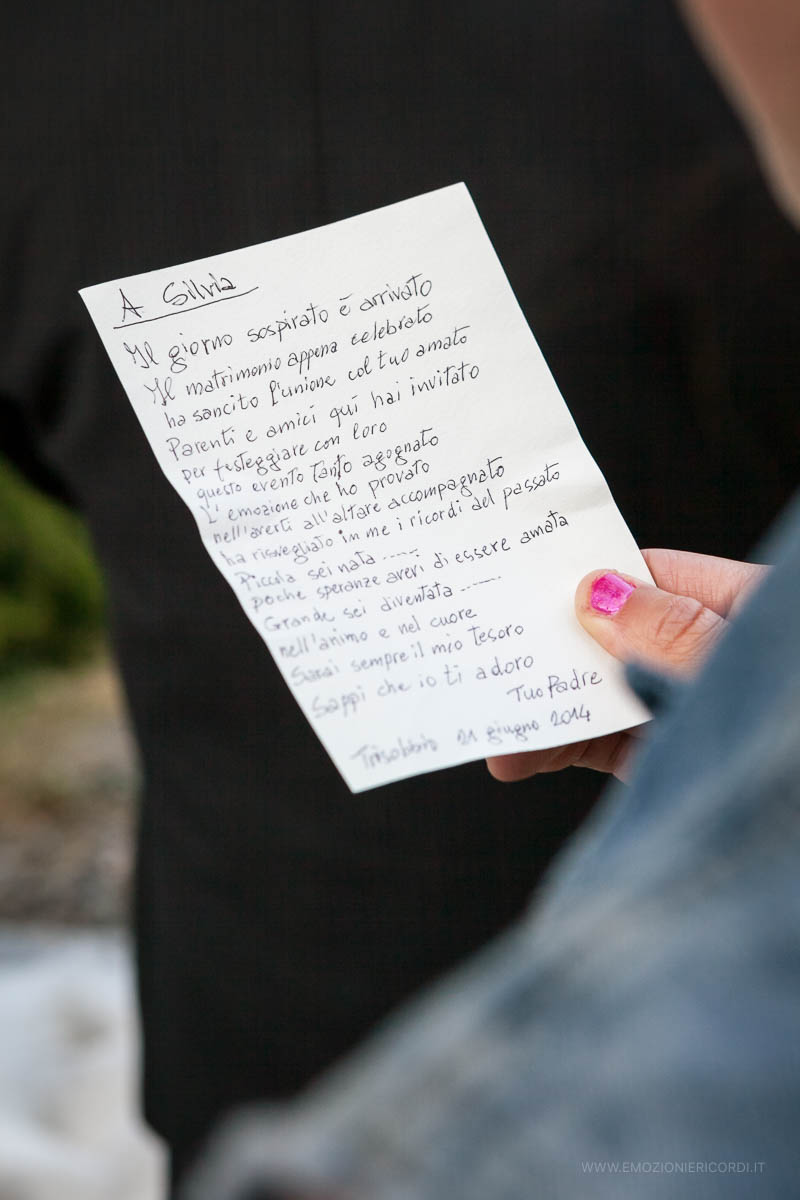 A Silvia
Il giorno sospirato è arrivato
Il matrimonio appena celebrato
ha sancito l'unione col tuo amato
Parenti e amici qui hai invitato
per festeggiare con loro
questo evento tanto agognato
L'emozione che ho provato
nell'averti all'altare accompagnato
ha risvegliato in me i ricordi del passato
Piccola sei nata ......
poche speranze avevi di essere amata
Grande sei diventata ........
nell'animo e nel cuore
Sarai sempre il mio tesoro
Sappi che io ti adoro
Tuo Padre
Trisobbio 21 giugno 2014
WWW.EMOZIONIERICORDI.IT